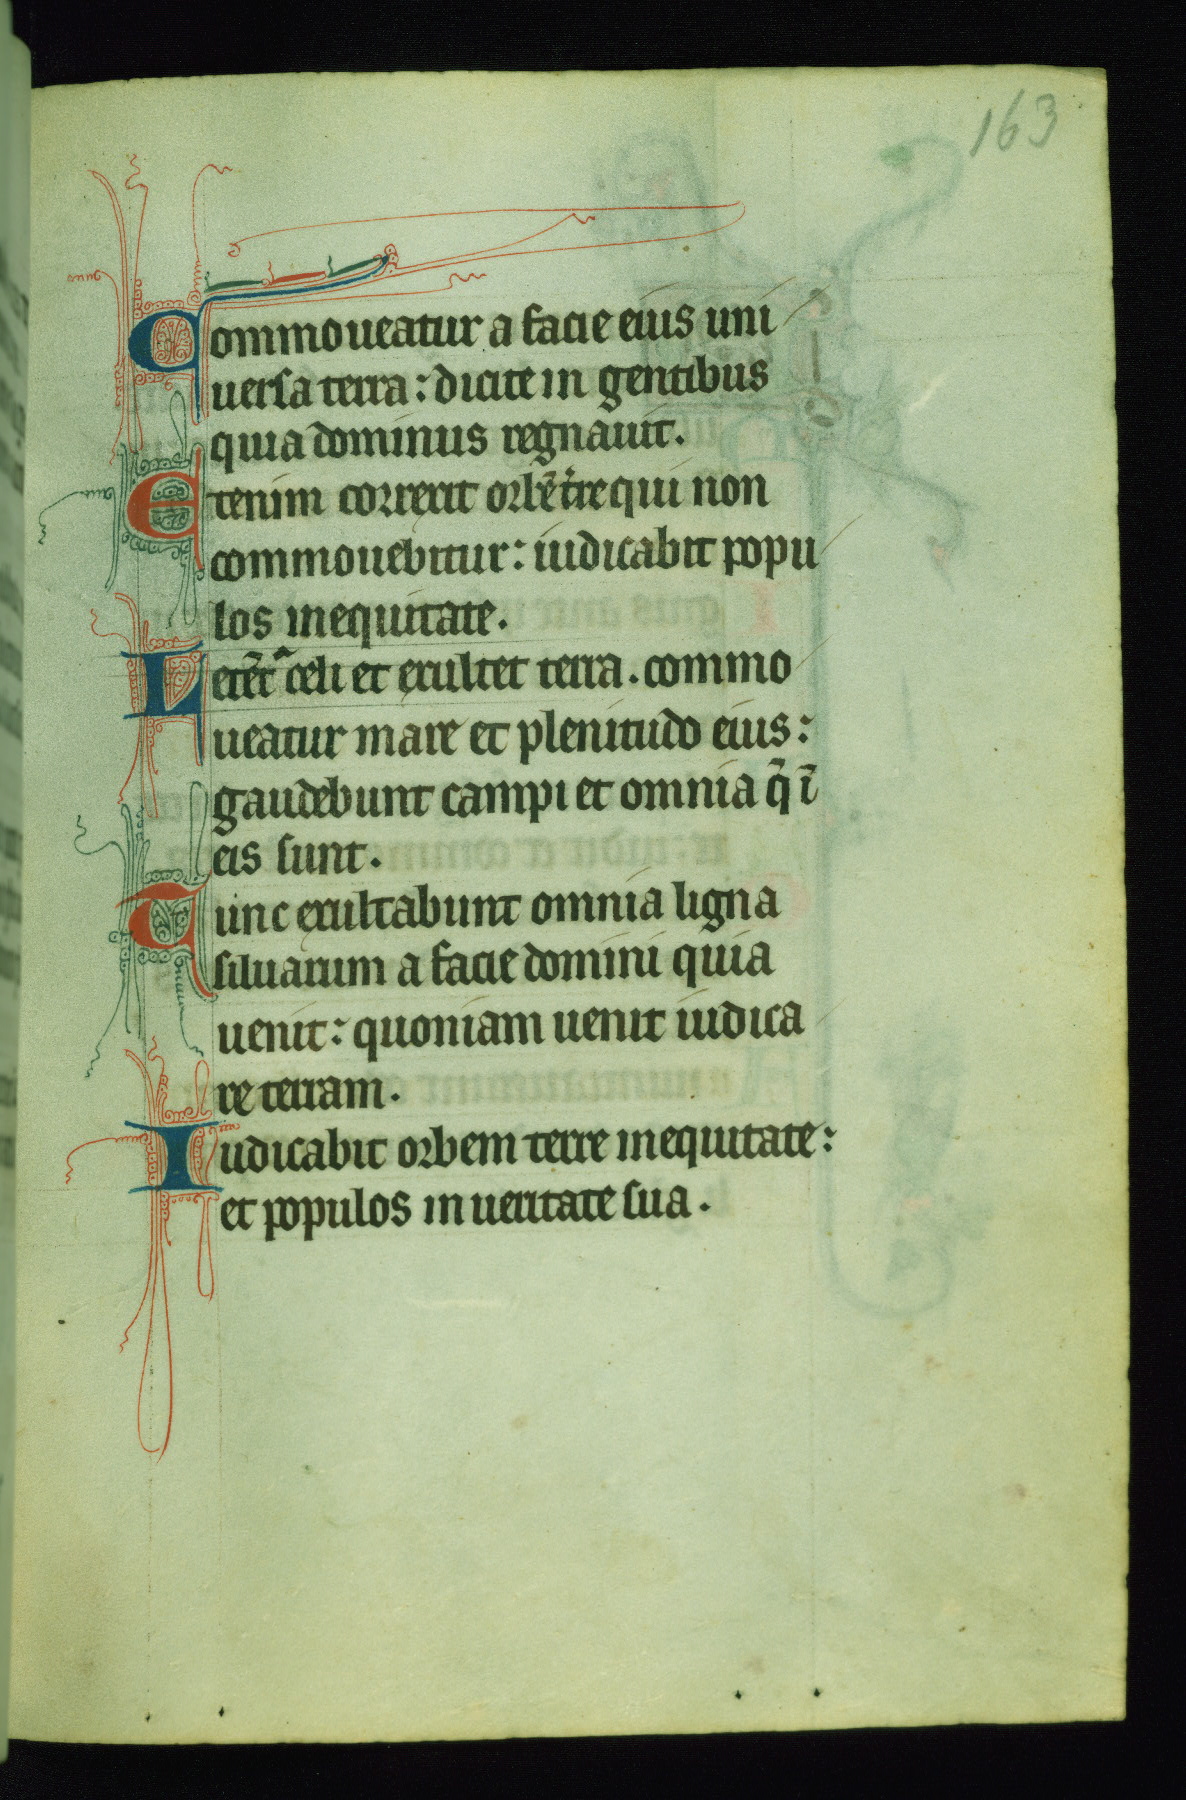 163
Commoueatur a facie eius uni
uersa terra: dicite in gentibus
quia dominus regnauit.
Etenim correxit orbē t̄re qui non
commouebitur: iudicabit popu
los in equitate.
Letēt᷑ celi et exultet terra. commo
ueatur mare et plenitudo eius:
gaudebunt campi et omnia q̄ ī
eis sunt.
Tunc exultabunt omnia ligna
siluarum a facie domini quia
uenit: quoniam uenit iudica
re terram.
Iudicabit orbem terre in equitate:
et populos in ueritate sua.